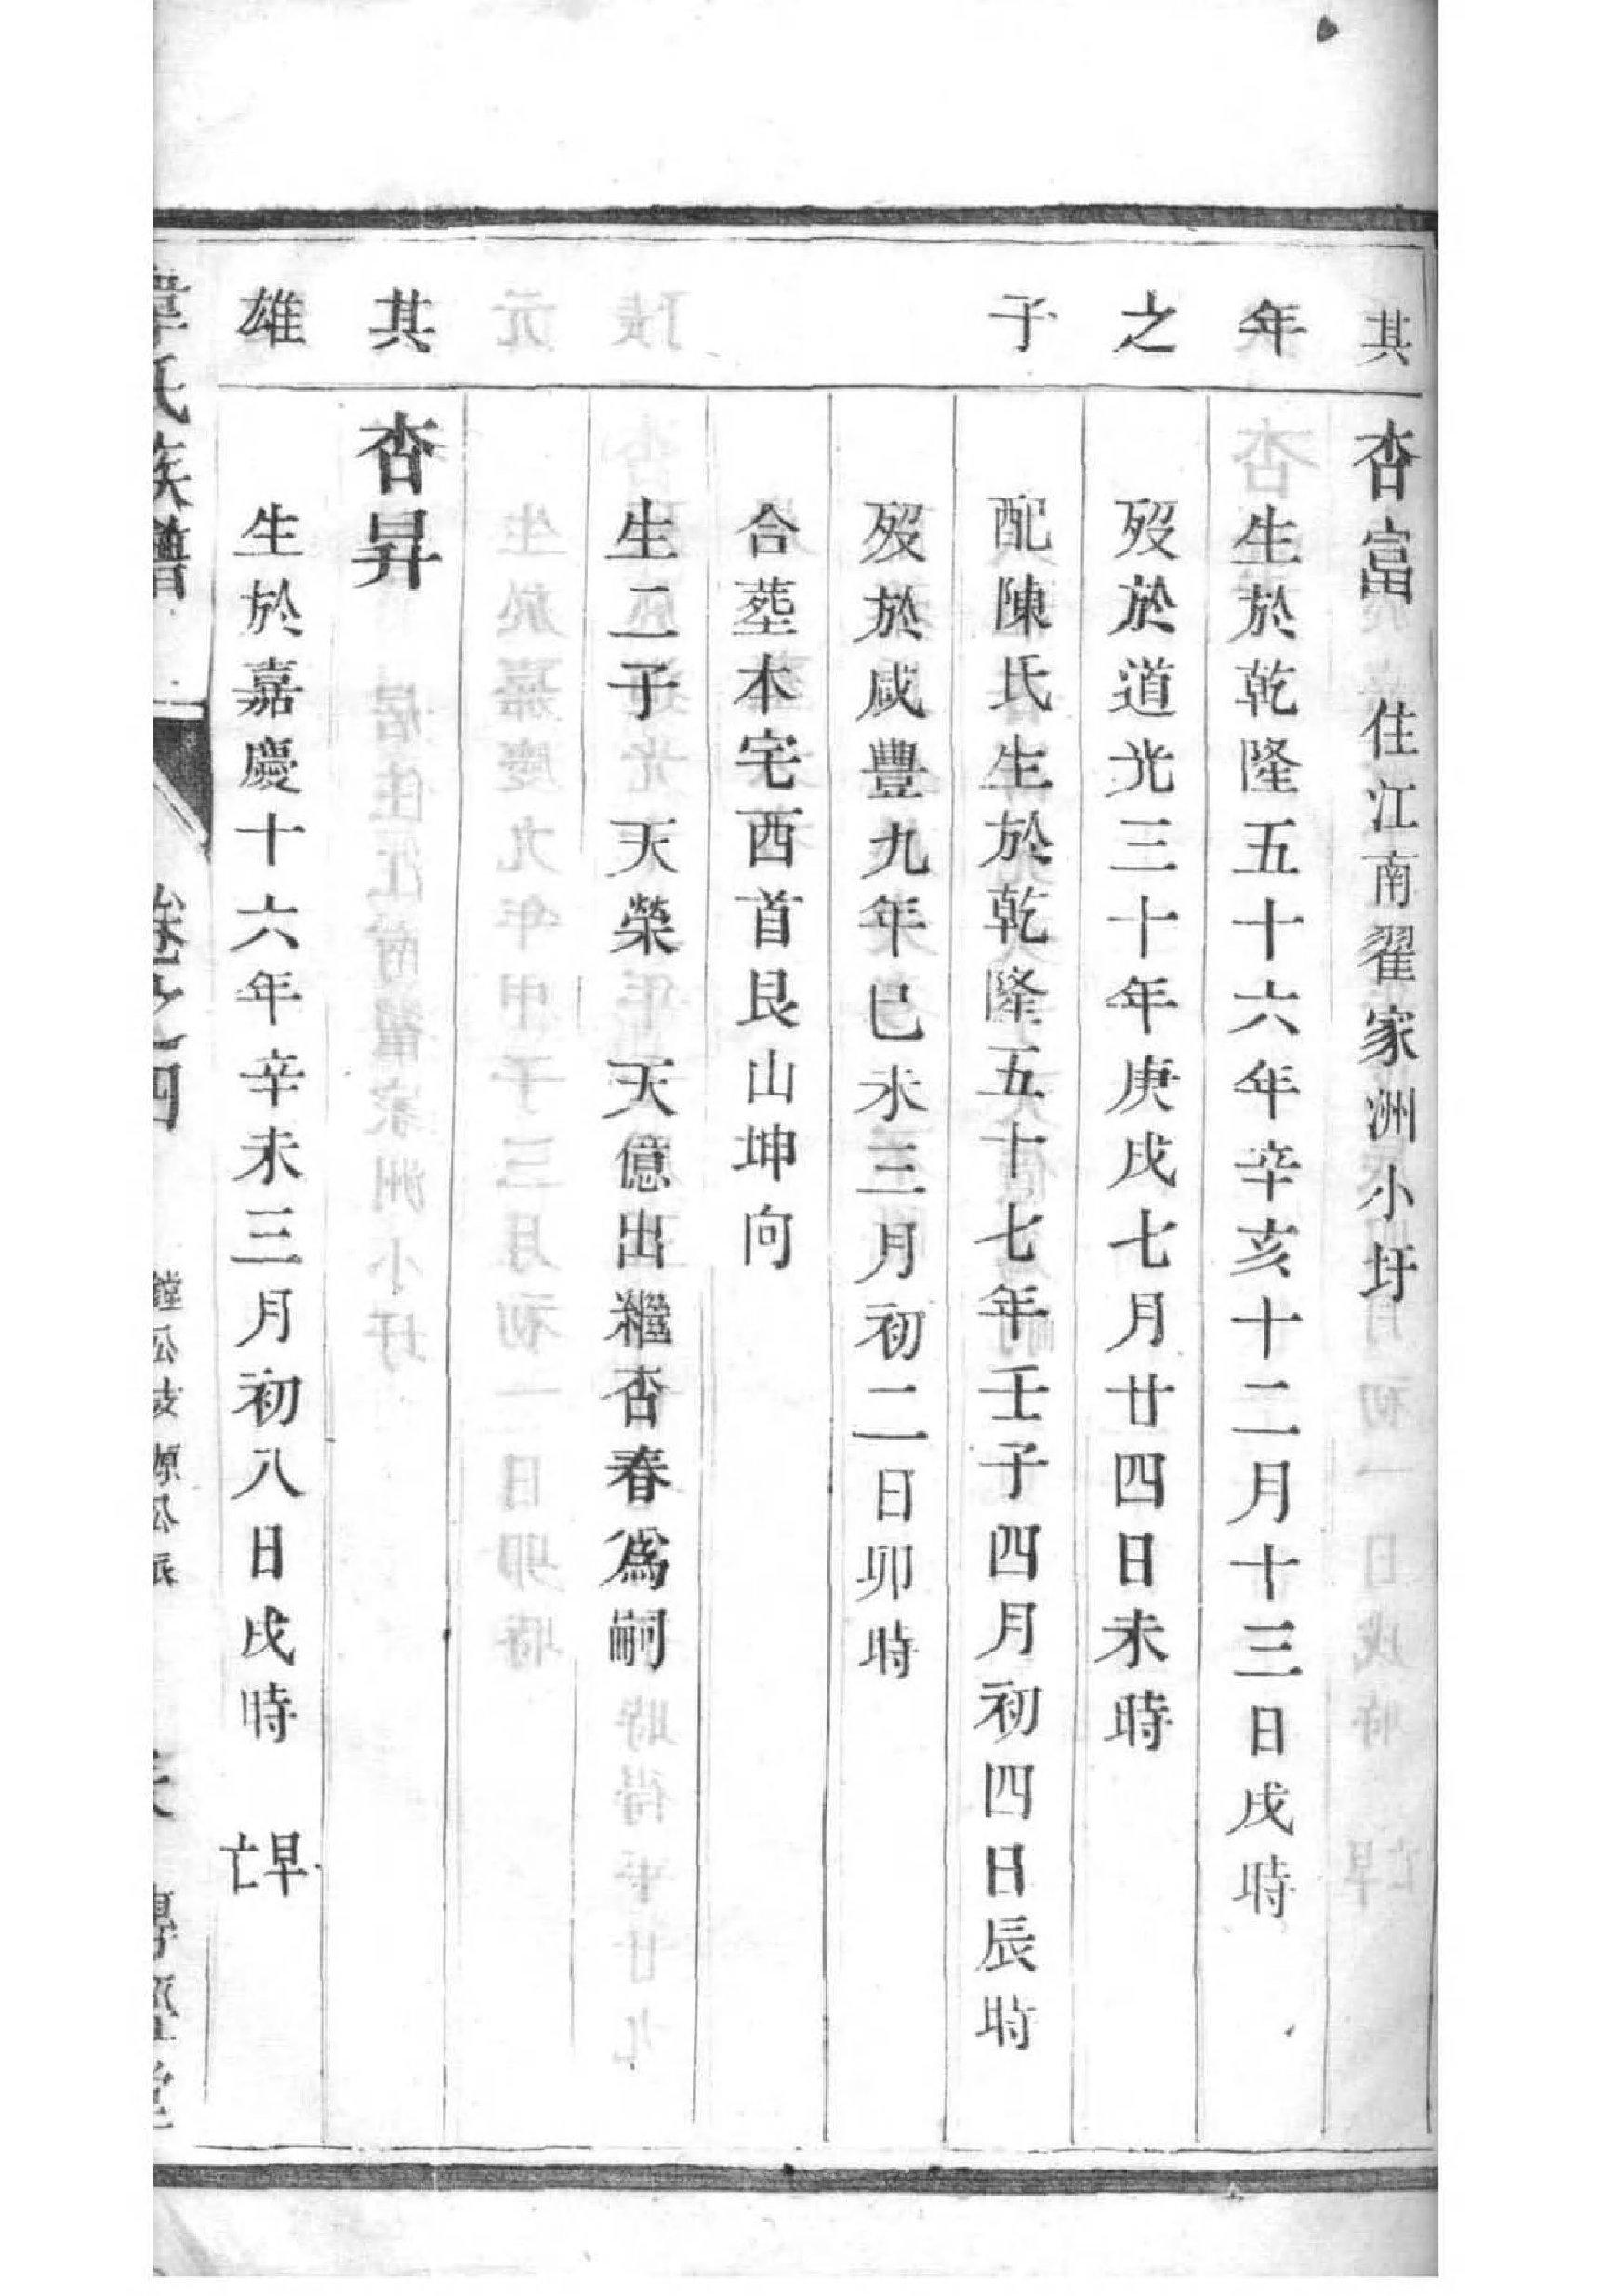 其 杏富 住江南翟家洲小圩
年 生於乾隆五十六年辛亥十二月十三日戌時
之 歿於道光三十年庚戌七月廿四日未時
子 配陳氏生於乾隆五十七年壬子四月初四日辰時
歿於咸豐九年巳未三月初二日卯時
合塟本宅西首艮山坤向
生二子 天榮 天億出繼杏春爲嗣
其 杏昇
雄 生於嘉慶十六年辛未三月初八日戌時 早亡
韋氏族譜 卷之四